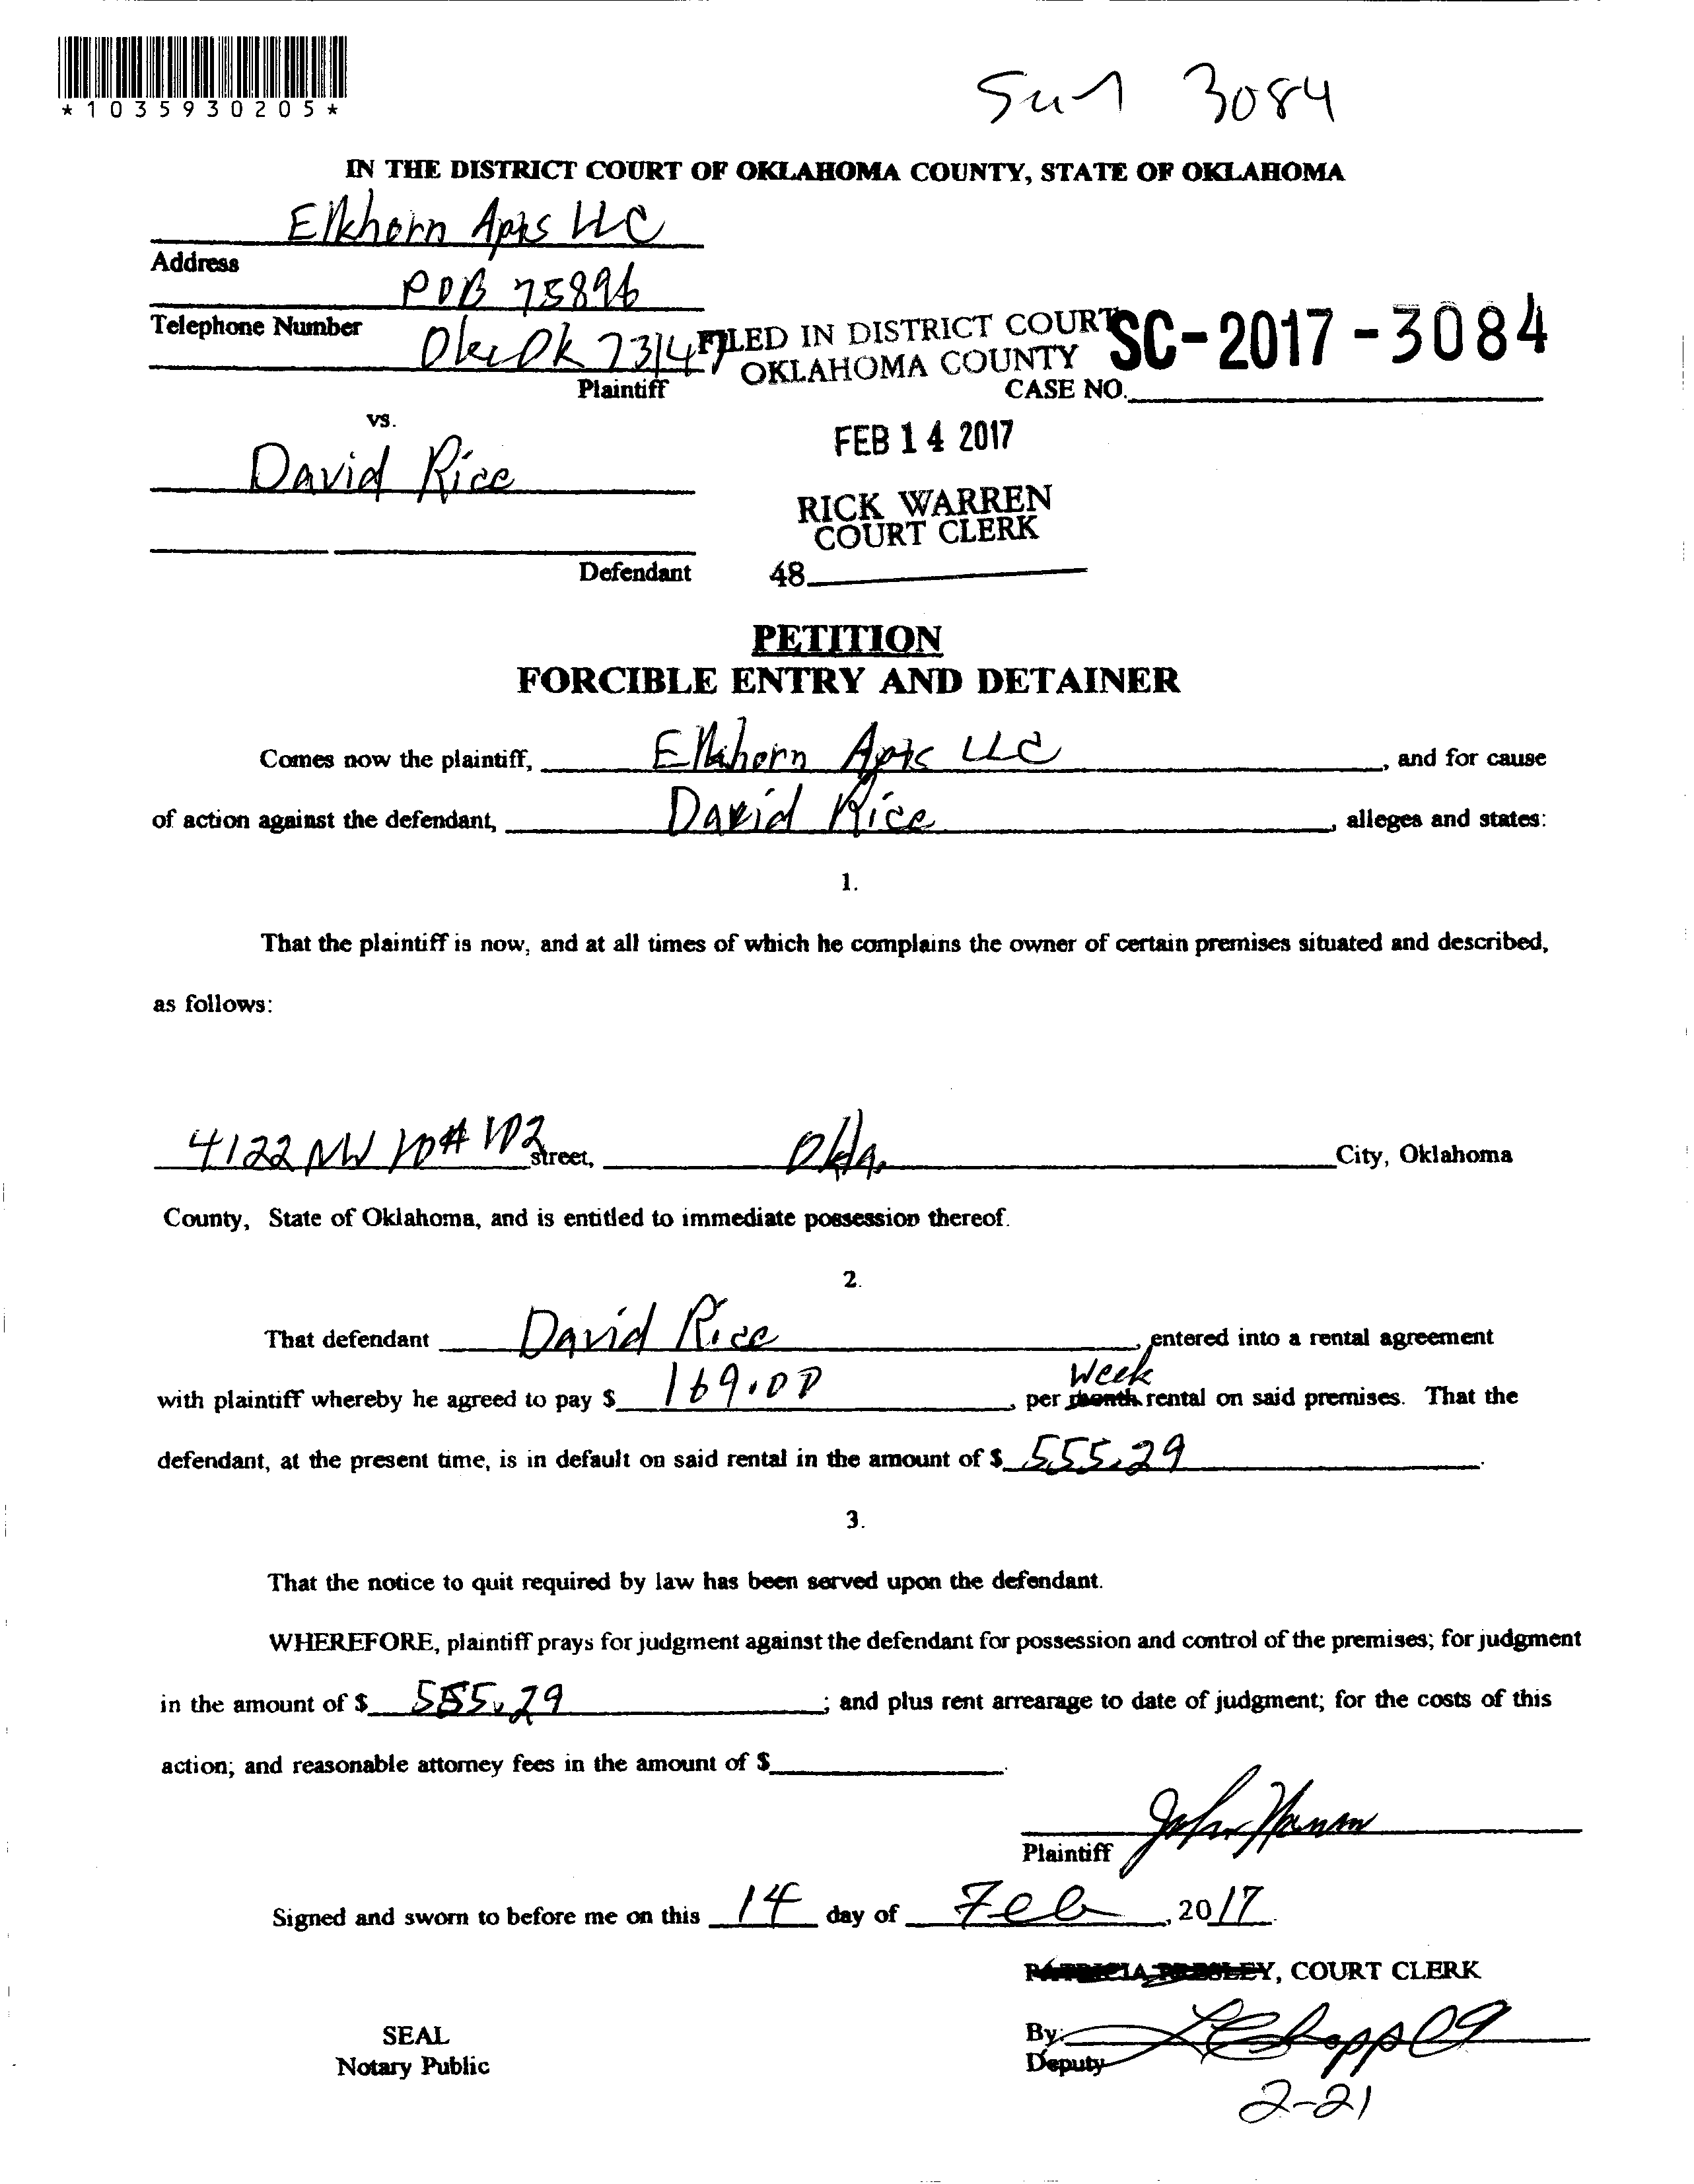 *1035930205*
3084
IN THE DISTRICT COURT OF OKLAHOMA COUNTY, STATE OF OKLAHOMA
Elkhorn Apts LLC
Address
POB 75896
Telephone Number
Okc Ok 73147
FILED IN DISTRICT COURT
OKLAHOMA COUNTY
SC-2017-3084
Plaintiff
CASE NO.
vs.
FEB 14 2017
David Rice
RICK WARREN
COURT CLERK
Defendant
48
PETITION
FORCIBLE ENTRY AND DETAINER
Comes now the plaintiff, Elkhorn Apts LLC, and for cause
of action against the defendant, David Rice, alleges and states:
1.
That the plaintiff is now, and at all times of which he complains the owner of certain premises situated and described,
as follows:
4122 NW 10 # 102 street, Okla. City, Oklahoma
County, State of Oklahoma, and is entitled to immediate possession thereof.
2.
That defendant David Rice, entered into a rental agreement
with plaintiff whereby he agreed to pay $ 169.00, per month week rental on said premises. That the
defendant, at the present time, is in default on said rental in the amount of $ 555.29.
3.
That the notice to quit required by law has been served upon the defendant.
WHEREFORE, plaintiff prays for judgment against the defendant for possession and control of the premises; for judgment
in the amount of $ 555.29; and plus rent arrearage to date of judgment; for the costs of this
action; and reasonable attorney fees in the amount of $.
John
Plaintiff
Signed and sworn to before me on this 14 day of Feb, 2017.
PATRICIA PRESLEY, COURT CLERK
SEAL
By:
Notary Public
Deputy
2-21